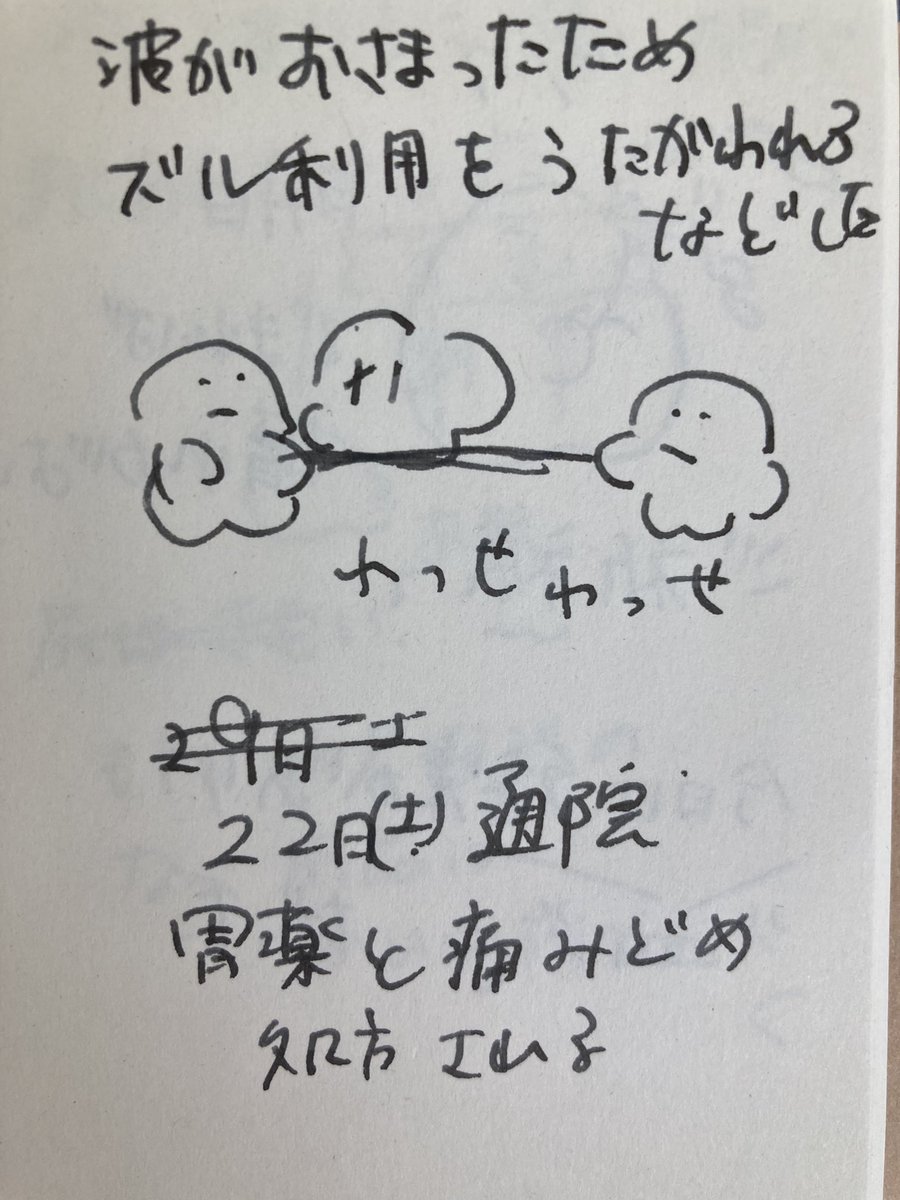 波がおさまったため
ズル利用をうたがわれる
などした
わっせ
わっせ
29日 土
22日(土) 通院
胃薬と痛みどめ
処方される